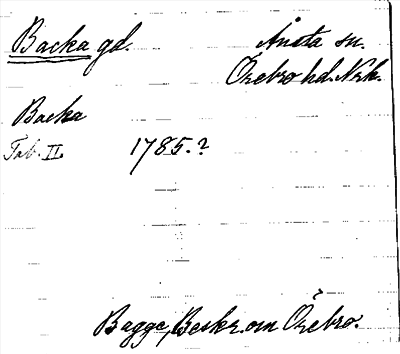 Backa gd. Ånsta sn.
Örebro hd. Nrk.
Backa
Tab. II. 1785.?
Bagge, Beskr. om Örebro.